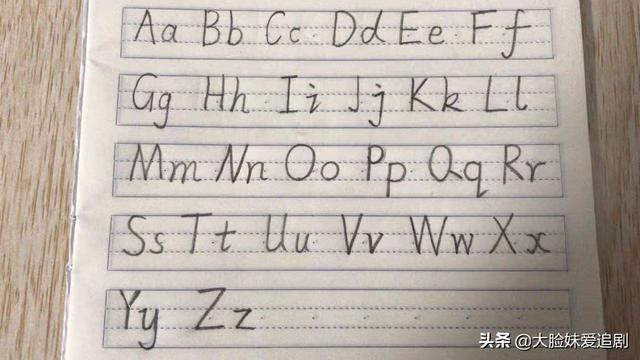 Aa Bb Cc Dd Ee Ff
Gg Hh Ii Jj Kk Ll
Mm Nn Oo Pp Qq Rr
Ss Tt Uu Vv Ww Xx
Yy Zz
头条 @大脸妹爱追剧